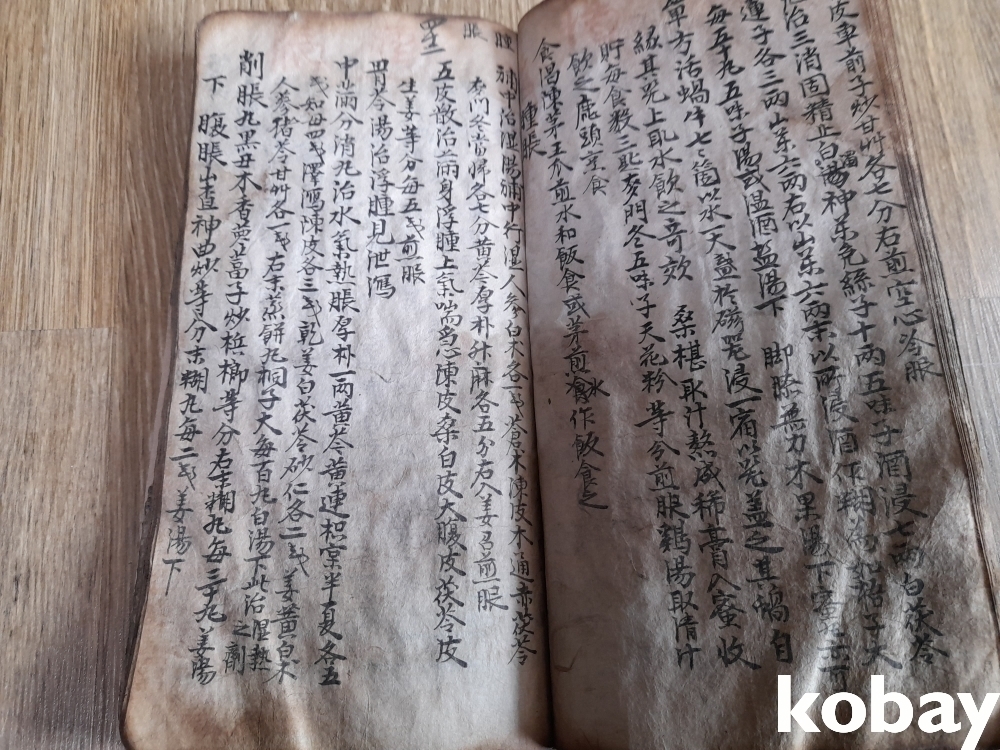 皮車前子炒甘艸各七分右煎空心冷服
治三消固精止白濁兔絲子十兩五味子酒浸七兩白茯苓
蓮子各三兩山茱六兩右以山茱六兩末以所浸酒作糊爲丸梧子大
每五十丸五味子湯或温酒盐湯下 脚膝無力木果湯下
單方活蝸牛七箇以水天盐於磁器浸一宿以器盖之其蝸自
緣其器上取水飮之奇效 桑椹取汁熬成稀膏入蜜收
貯每食數三匙 麥門冬五味子天花粉等分煎服鷄湯取清汁
飮之鹿頭烹食
食渴陳茅王瓜煎水和飯食或茅煎水作飯食之
腫脹
腫脹
補中治湿湯補中行湿人參白朮各一戔蒼朮陳皮木通赤茯苓
麥門冬當歸各七分黃芩厚朴升麻各五分右入姜召煎服
五皮散治滿身浮腫上氣喘急陳皮桑白皮大腹皮茯苓皮
生姜等分每五戔煎服
胃苓湯治浮腫見泄瀉
中滿分消丸治水氣熱脹厚朴一兩黃芩黃連枳宲半夏各五
戔知母四戔澤瀉陳皮各三戔乾姜白茯苓砂仁各二戔姜黃白朮
人參猪苓甘艸各一戔右末蒸餅丸梧子大每百丸白湯下此治湿熱之劑
削脹丸黑丑木香葶藶子炒梹榔等分右末糊丸每三十丸姜湯
下
腹脹山査神曲炒等分末糊丸每二戔姜湯下